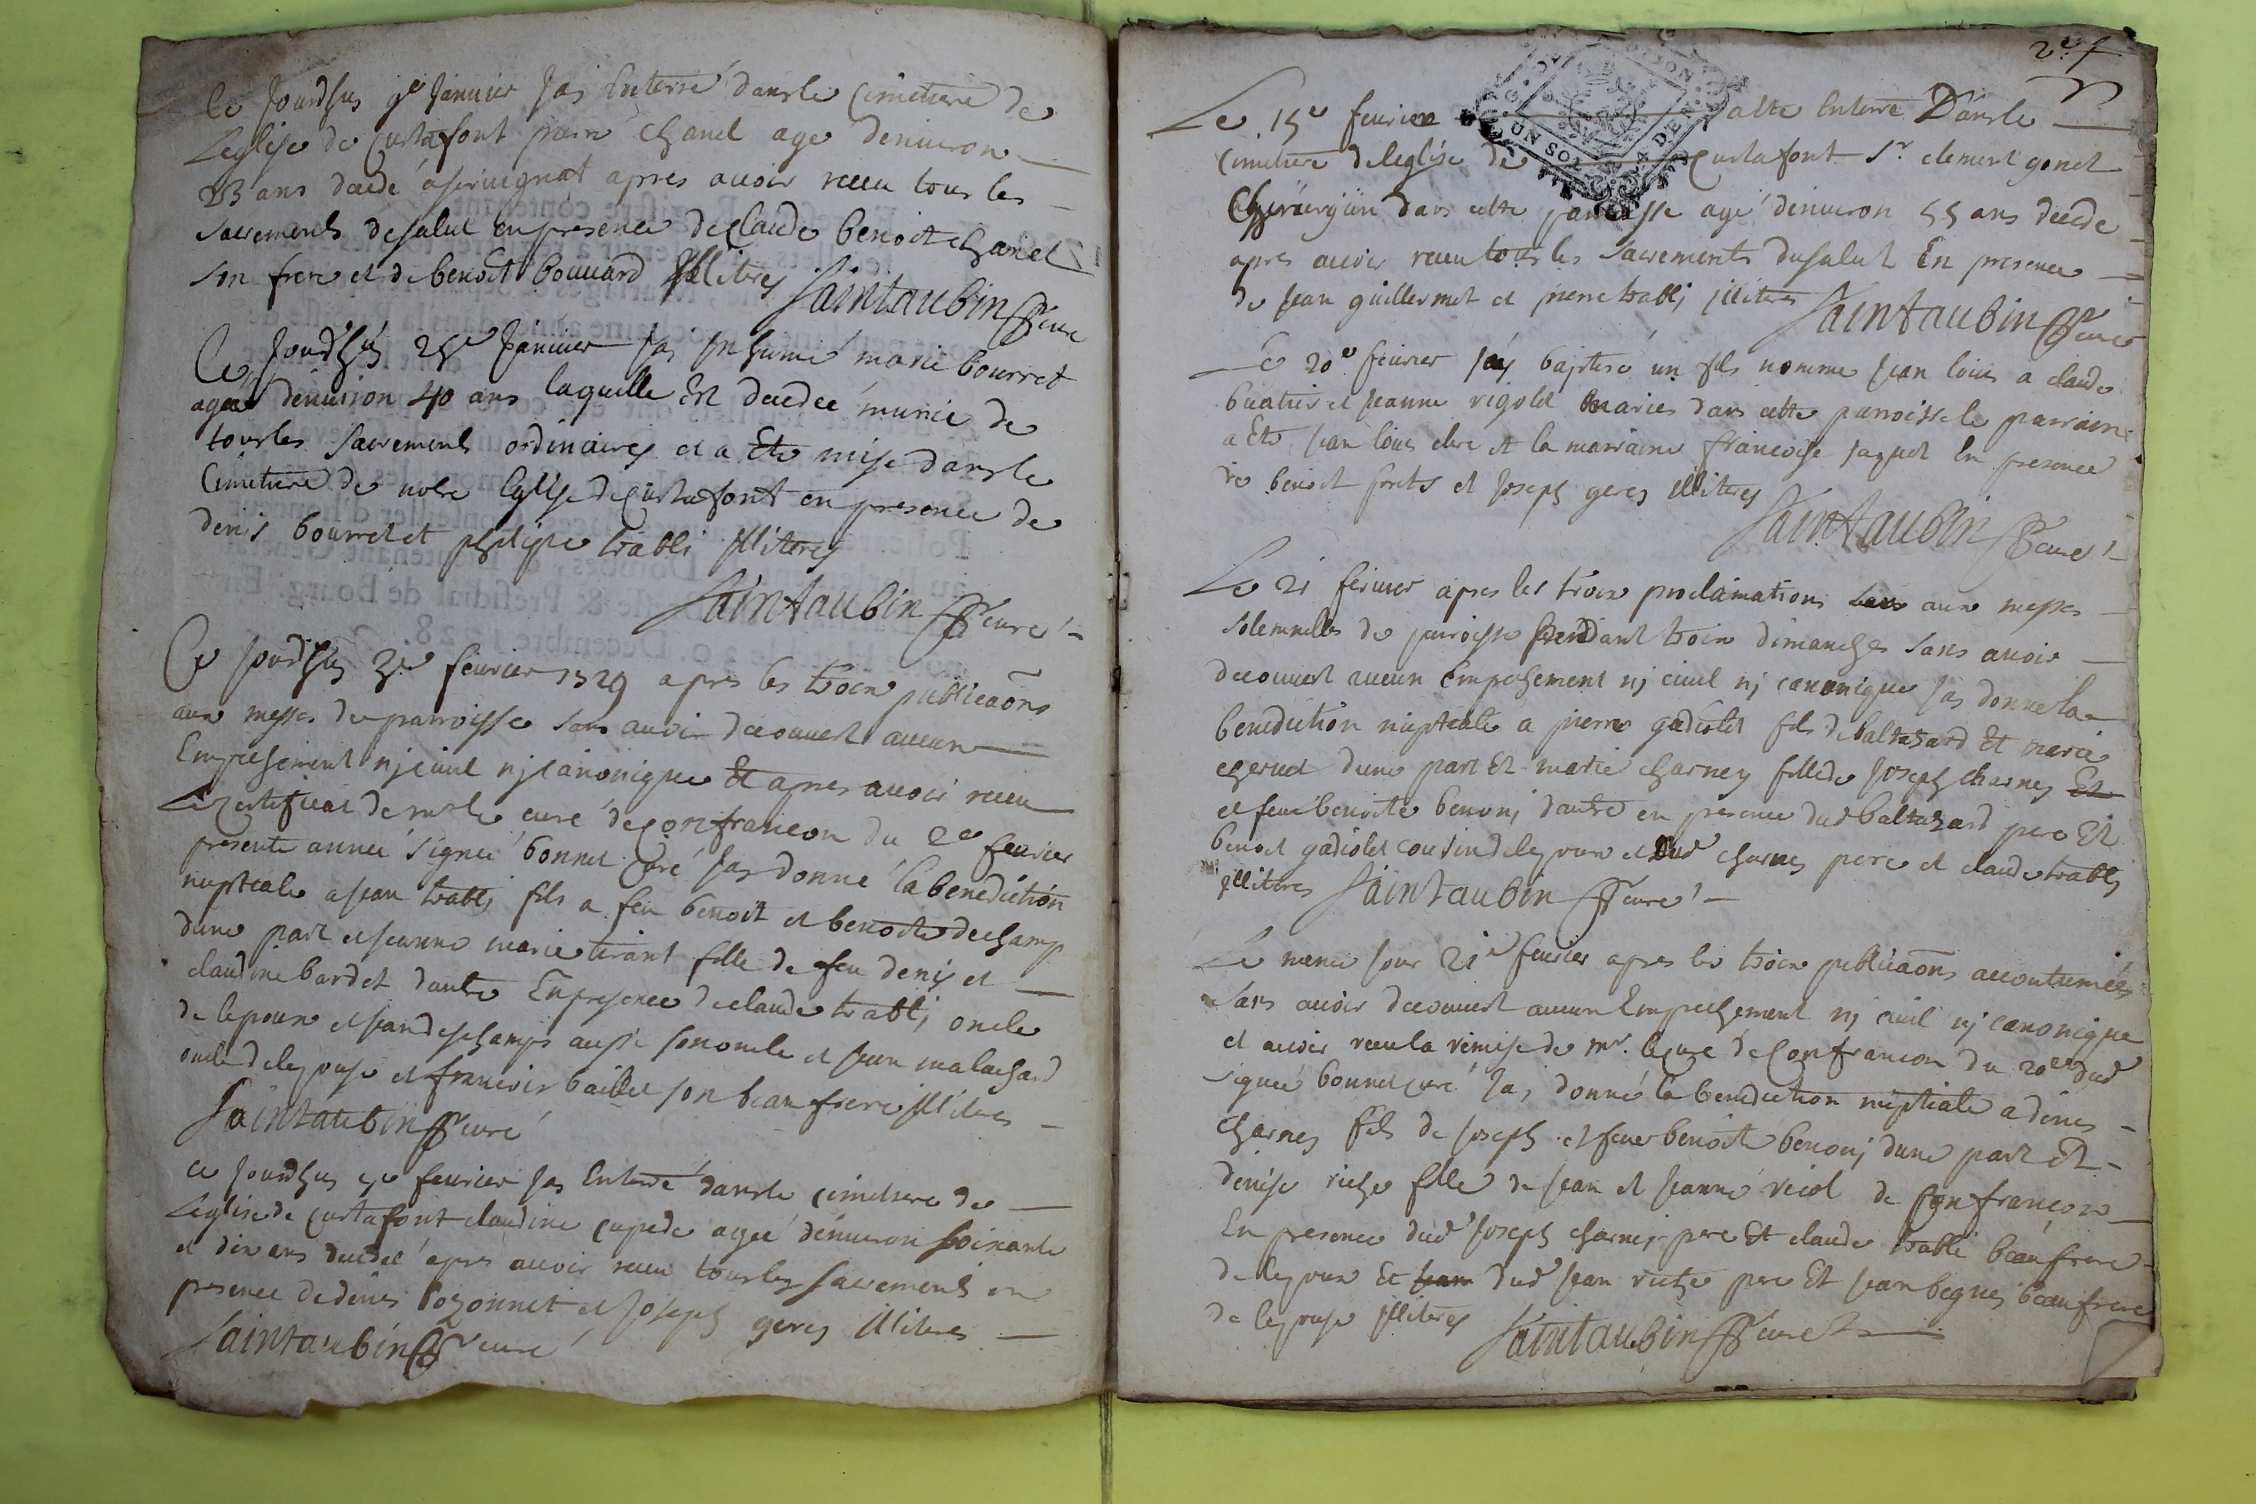 Ce Jourdhuy 9e Janvier Jay Enterré dans le Cimetiere de
Leglise de Curtafont pierre Chanel age denviron
23 ans decedé apres avoir receu tous les
sacrements de salut En presence de Claude benoit chanel
son frere et de benoit bouvard Illitres Saintaubin Curé
Ce Jourdhuy 25e Janvier Jay Inhumé marie bourret
agée denviron 40 ans laquelle Est decedée munie de
tous les sacrements ordinaires et a Ete mise dans le
Cimetiere de notre Eglise de Curtafont en presence de
denis bourret et philipe trabli Illitres
Saintaubin Curé
Ce Jourdhuy 3e fevrier 1729 apres les trois publicaõns
aux messes de parroisse sans avoir decouvert aucun
Empechement nj civil nj canonique Et apres avoir receu
Le certificat de mr le curé de Confrancon du 2e fevrier
presente année signé bonnet Curé Jay donné la benediction
nuptiale a jean trabli fils a feu benoit et benoite dechamp
dune part et jeanne marie tirant fille de feu denis et
claudine bardet dautre En presence de claude trabli oncle
de lepoux et jean deschamps aussi son oncle et jean malachard
oncle de lepouse et francois baillet son beau frere Illitres
Saintaubin Curé
ce Jourdhuy fevrier Jay Enterré dans le cimetiere de
Leglise de Curtafont claudine agée denviron soixante
et dix ans decedée apres avoir receu tous les sacrements en
presence de denis et Joseph gerey Illitres
Saintaubin curé
2e f
Le 15e fevrier a Ete Enterré Dans le
Cimetiere de leglise de Curtafont Sr clement gonet
Chirurgien dans cette parroisse agé denviron 55 ans decedé
apres avoir receu tous les Sacrements du salut En presence
de jean guillermet et pierre trabli Illitres Saintaubin Curé
Le 20e fevrier Jay baptisé un fils nommé jean louis a claude
buatier et jeanne rigolet mariés dans cette parroisse le parrain
a Ete jean louis et la marraine francoise jaquet En presence
de benoit et Joseph gerey Illitres
Saintaubin Curé
Le 21 fevrier apres les trois proclamations aux messes
solemnelles de parroisse pendant trois dimanches sans avoir
decouvert aucun Empechement nj civil nj canonique Jay donné la
benediction nuptiale a pierre gadiolet fils de baltazard Et marie
dune part Et marie charney fille de Joseph charney Et
et feue benoite benonj dautre en presence dud baltazard pere Et
benoit gadiolet cousin de lepoux et dud charney pere et claude trabli
Illitres Saintaubin Curé
Le meme jour 21e fevrier apres les trois publicaõns accoutumées
sans avoir decouvert aucun Empechement nj civil nj canonique
et avoir receu la remise de mr. le curé de Confrancon du 20e dud
signée bonnet curé Jay donné la benediction nuptiale a denis
charney fils de Joseph et feue benoite benonj dune part Et
denise riche fille de jean et jeanne de Confrancon
En presence dud Joseph charney pere Et claude trabli beaufrere
de lepoux Et jean dud jean riche pere Et jean beaufrere
de lepouse Illitres Saintaubin Curé
UN SOL